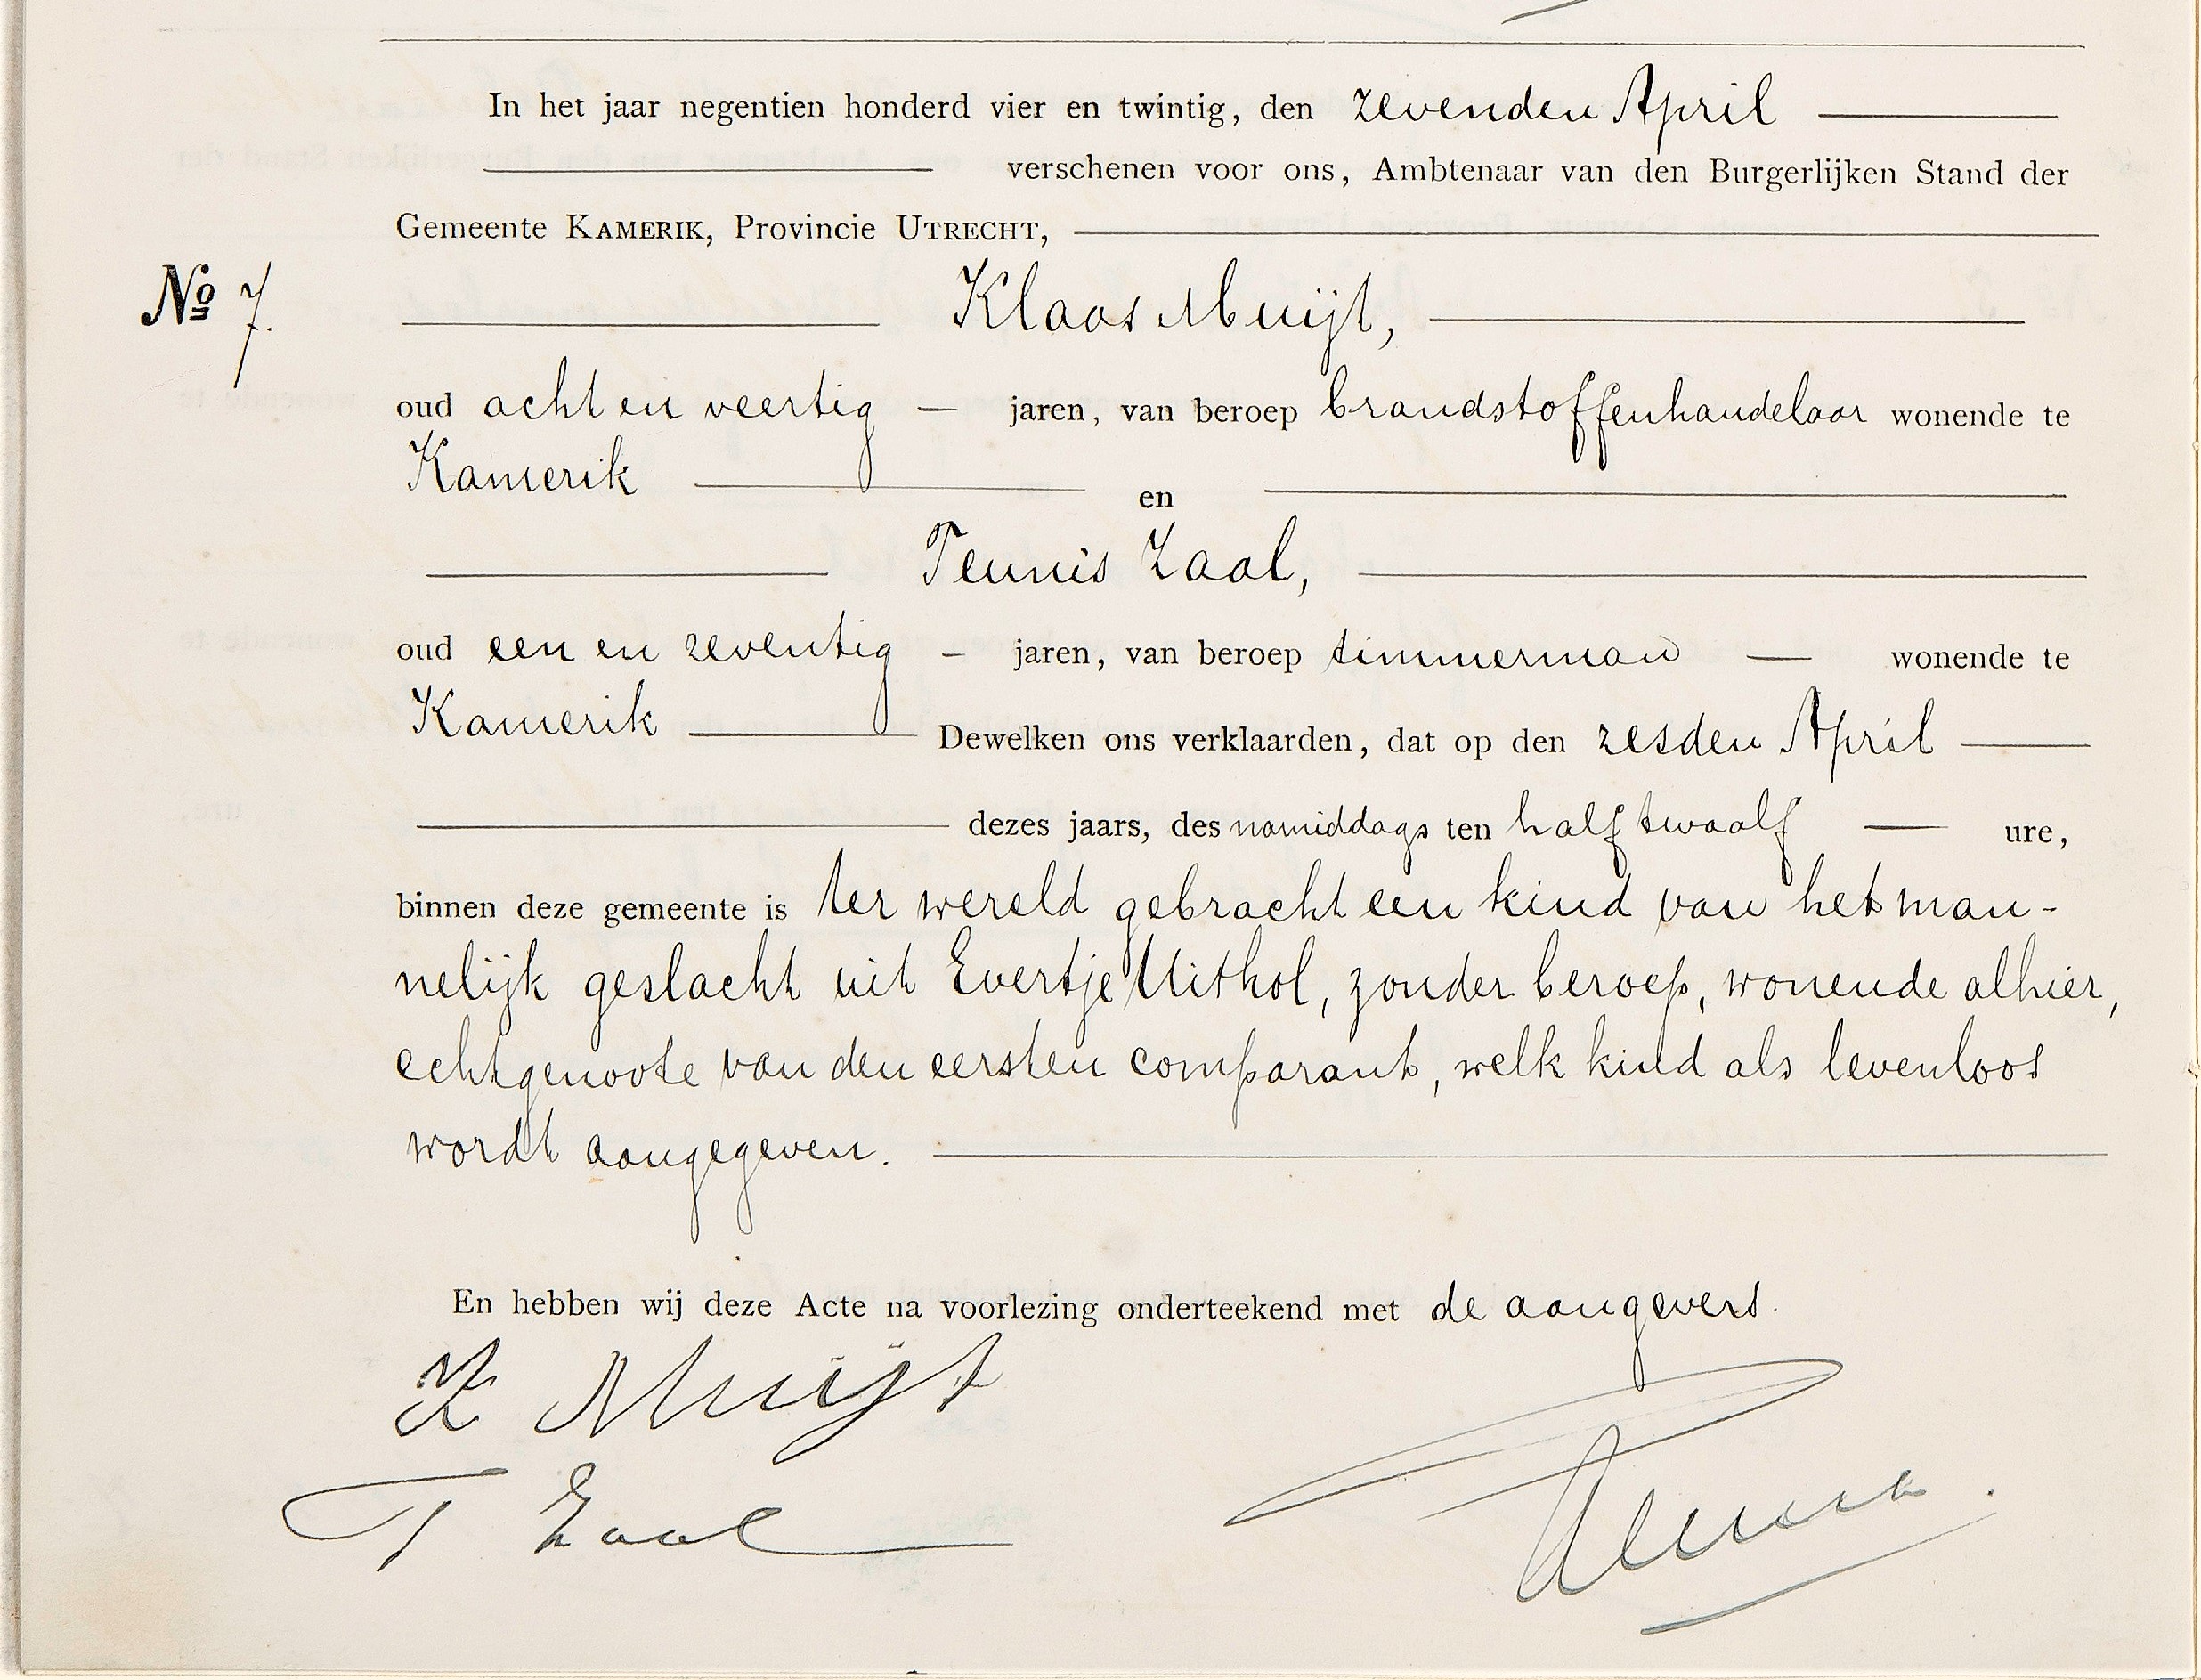 In het jaar negentien honderd vier en twintig, den zevenden April
verschenen voor ons, Ambtenaar van den Burgerlijken Stand der
Gemeente KAMERIK, Provincie UTRECHT,
No 7.
Klaas Muijt,
oud acht en veertig – jaren, van beroep brandstoffenhandelaar wonende te
Kamerik en
Teunis Zaal,
oud een en zeventig – jaren, van beroep timmerman — wonende te
Kamerik Dewelken ons verklaarden, dat op den zesden April
dezes jaars, des namiddags ten half twaalf — ure,
binnen deze gemeente is ter wereld gebracht een kind van het man-
nelijk geslacht uit Evertje Uithol, zonder beroep, wonende alhier,
echtgenoote van den eersten comparant, welk kind als levenloos
wordt aangegeven.
En hebben wij deze Acte na voorlezing onderteekend met de aangevers.
K Muijt
T Zaal